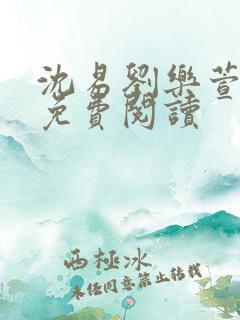 沈易劉樂萱
免費閱讀
西極冰
未經同意禁止轉載